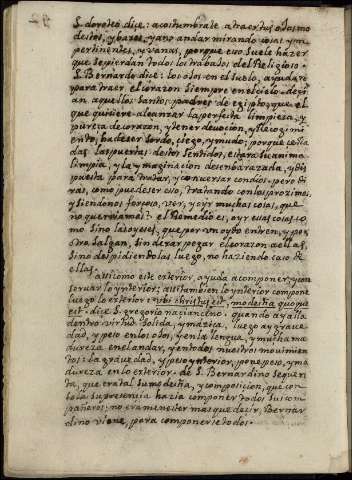 S. doroteo dice: acostumbrate a traer tus ojos mo
destos, y bajos, y a no andar mirando cosas ym
pertinentes, y vanas, porque eso suele hazer
que se pierdan todos los trabajos del Religioso.
S. Bernardo dice: los ojos en el suelo, ayudan
para traer el corazon siempre en el cielo. dezi
an aquellos santos padres de egipto, que el
que quisiere alcanzar la perfecta limpieza, y
pureza de corazon, y tener devocion, y Recogimi
ento, ha de ser sordo, ciego, y mudo; porque cerra
das las puertas destos sentidos, estara su anima
limpia, y la ymaginacion desembarazada, y dis
puesta para tratar, y conversar con dios. pero di
ras, como puede ser eso, tratando con los proximos,
y siendonos forzoso, ver, y oyr muchas cosas, que
no querriamos? el Remedio es, oyr esas cosas co
mo si no las oyeses, que por un oydo entren, y por
otro salgan, sin dexar pegar el corazon a ellas,
sino despidiendolas luego, no haziendo caso de
ellas.
assi como este exterior, ayuda a componer, y con
servar lo ynterior; assi tambien lo ynterior compone
luego lo exterior: ubi christus est, modestia quoque
est. dice S. gregorio nacianceno. quando ay alla
dentro virtud solida, y maciza, luego ay grave
dad, y peso en los ojos, y en la lengua, y mucha ma
dureza en el andar, y en todos nuestros movimien
tos: la gravedad, y peso ynterior, pone peso, y ma
dureza en lo exterior. de S. Bernardino se cuen
ta, que era tal su modestia, y composicion, que con
sola su presencia hazia componer todos sus com
pañeros; no era menester mas que dezir, Bernar
dino viene, para componerse todos.